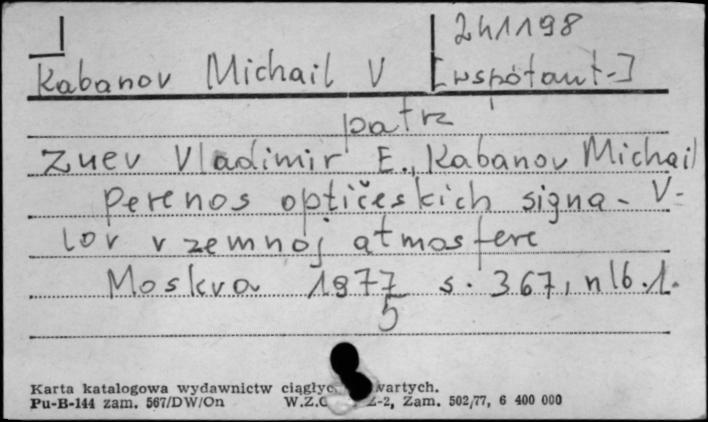 241198
Kabanov Michail V [współaut.]
patrz
Zuev Vladimir E., Kabanov Michail V.
Perenos optičeskich signa-
lov v zemnoj atmosfere
Moskva 1977 s. 367, nlb. 1.
5
Karta katalogowa wydawnictw wartych.
Pu-B-144 zam. 567/DW/On Z-2, Zam. 502/77, 6 400 000